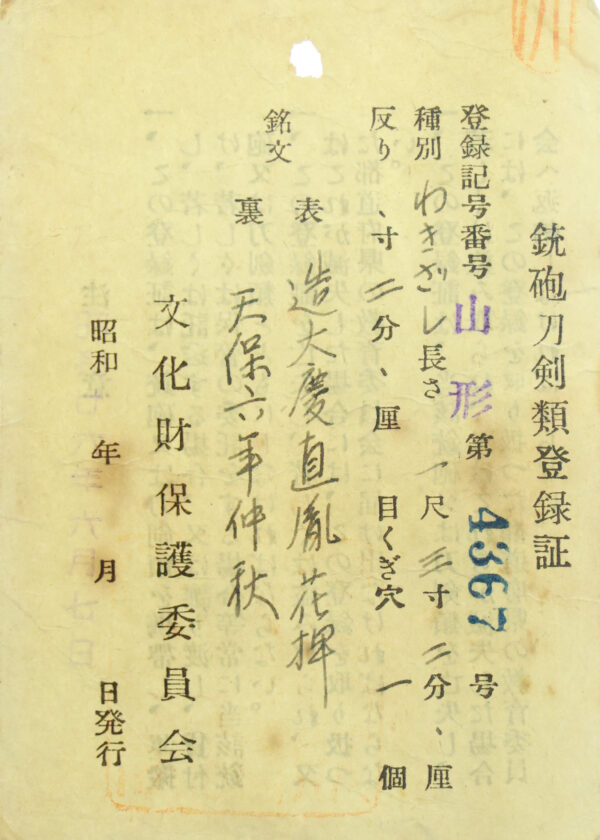 銃砲刀剣類登録証
登録記号番号 山形 第 4367 号
種別 わきざし 長さ 一尺 三寸 二分、厘
反り 、寸 二分、厘 目くぎ穴 一 個
銘文 表 造大慶直胤 花押
裏 天保六年仲秋
文化財保護委員会
昭和 年 月 日発行